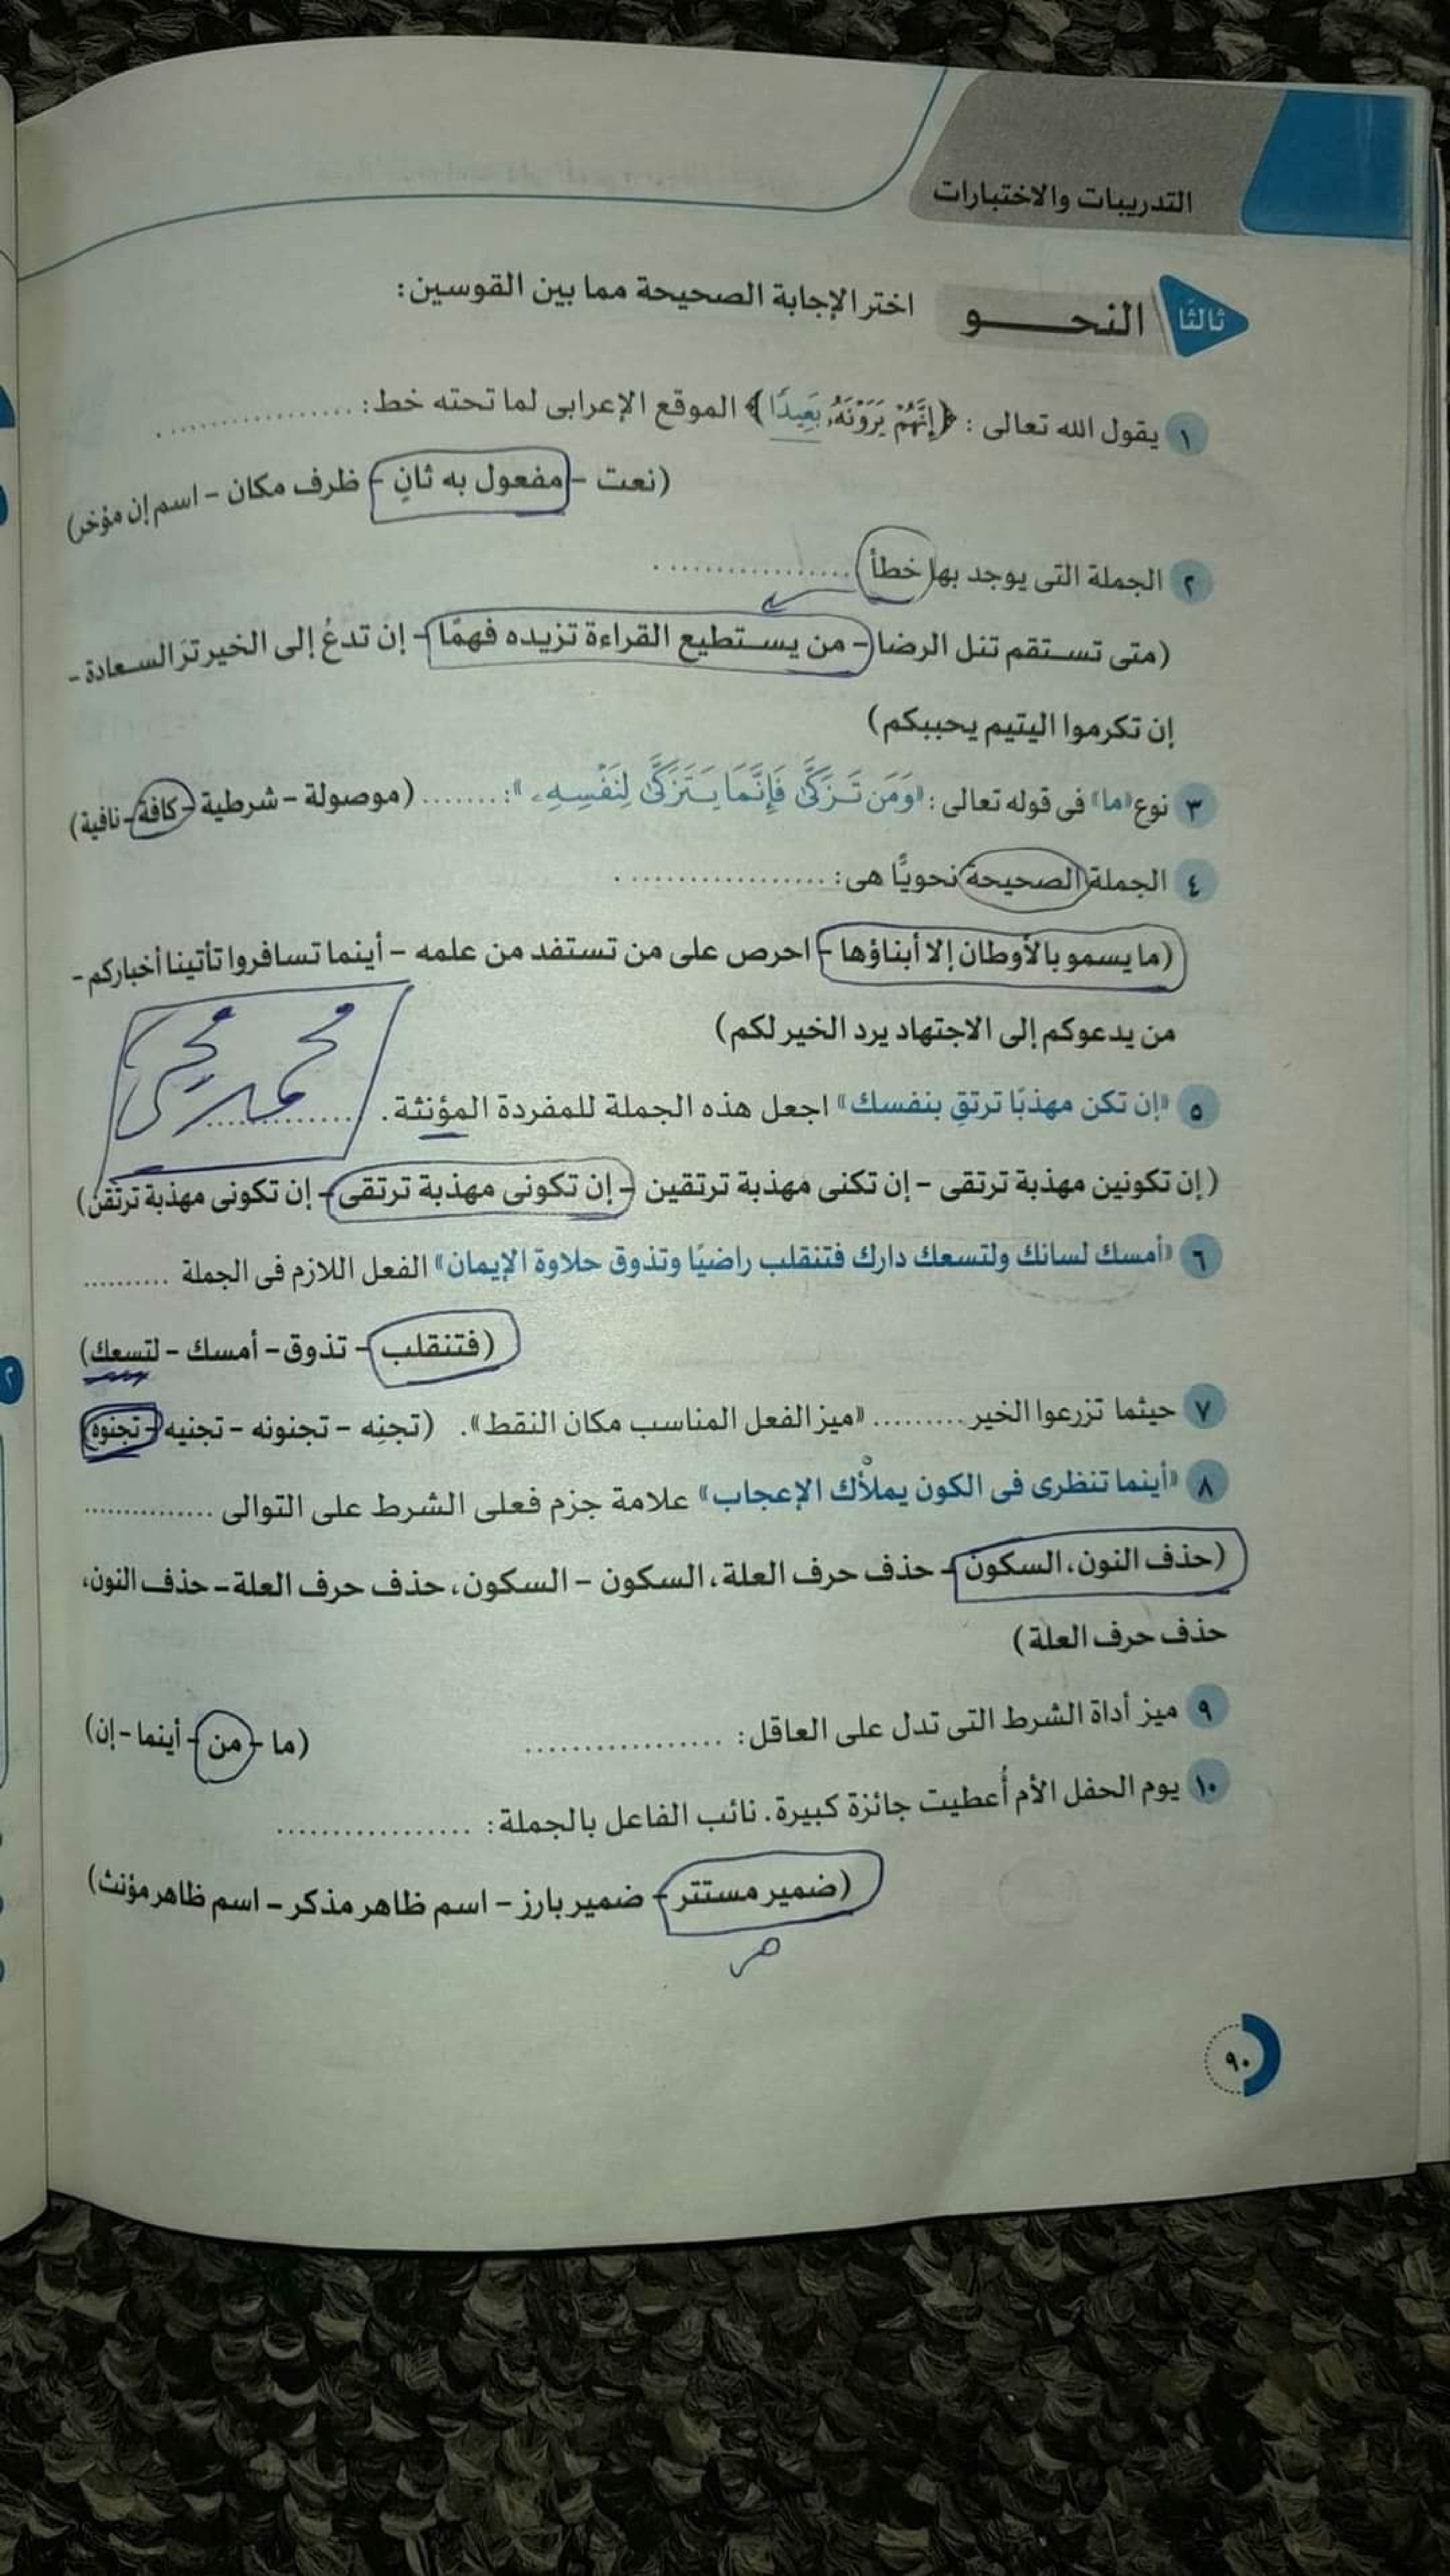 التدريبات والاختبارات
ثالثًا النحو اختر الإجابة الصحيحة مما بين القوسين:
١ يقول الله تعالى : ﴿إِنَّهُمْ يَرَوْنَهُۥ بَعِيدًا﴾ الموقع الإعرابى لما تحته خط: ................
(نعت - مفعول به ثانٍ - ظرف مكان - اسم إن مؤخر)
٢ الجملة التى يوجد بها خطأ ................
(متى تستقم تنل الرضا - من يستطيع القراءة تزيده فهمًا - إن تدعُ إلى الخير ترَ السعادة -
إن تكرموا اليتيم يحببكم)
٣ نوع «ما» فى قوله تعالى : «وَمَن تَزَكَّىٰ فَإِنَّمَا يَتَزَكَّىٰ لِنَفْسِهِۦ» : ........ (موصولة - شرطية - كافة - نافية)
٤ الجملة الصحيحة نحويًّا هى: ................
(ما يسمو بالأوطان إلا أبناؤها - احرص على من تستفد من علمه - أينما تسافروا تأتينا أخباركم -
من يدعوكم إلى الاجتهاد يرد الخير لكم)
محمد يحيى
٥ «إن تكن مهذبًا ترتقِ بنفسك» اجعل هذه الجملة للمفردة المؤنثة. ................
(إن تكونين مهذبة ترتقى - إن تكنى مهذبة ترتقين - إن تكونى مهذبة ترتقى - إن تكونى مهذبة ترتقن)
٦ «أمسك لسانك ولتسعك دارك فتنقلب راضيًا وتذوق حلاوة الإيمان» الفعل اللازم فى الجملة ..........
(فتنقلب - تذوق - أمسك - لتسعك)
٧ حيثما تزرعوا الخير .......... «ميز الفعل المناسب مكان النقط». (تجنِه - تجنونه - تجنيه - تجنوه)
٨ «أينما تنظرى فى الكون يملأْك الإعجاب» علامة جزم فعلى الشرط على التوالى ..............
(حذف النون، السكون - حذف حرف العلة، السكون - السكون، حذف حرف العلة - حذف النون،
حذف حرف العلة)
٩ ميز أداة الشرط التى تدل على العاقل: ................ (ما - من - أينما - إن)
١٠ يوم الحفل الأم أُعطيت جائزة كبيرة. نائب الفاعل بالجملة: ................
(ضمير مستتر - ضمير بارز - اسم ظاهر مذكر - اسم ظاهر مؤنث)
٩٠